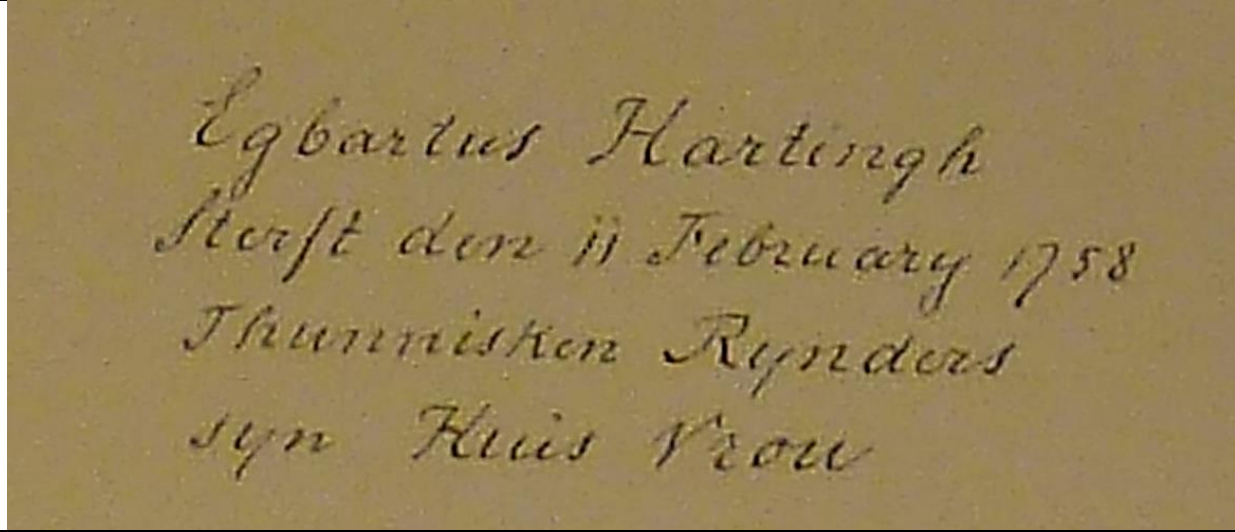 Egbartus Hartingh
Sterft den 11 February 1758
Thunnisken Rynders
syn Huis Vrou